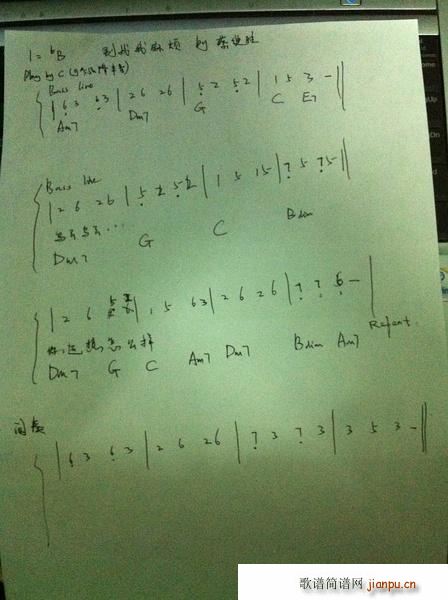 1 = ♭B 别找我麻烦 by 蔡健雅
Play by C
Bass line
| 6 3 6 3 | 2 6 2 6 | 5 2 5 2 | 1 5 3 - ||
Am7 Dm7 G C E7
Bass line
| 2 6 2 6 | 5 2 5 2 | 1 5 1 5 | 7 5 7 5 - ||
Dm7 G C Bdim
| 2 6 | 1 5 6 3 | 2 6 2 6 | 7 7 6 - |
你还想怎么样 Repeat
Dm7 G C Am7 Dm7 Bdim Am7
间奏
| 6 3 6 3 | 2 6 2 6 | 7 3 7 3 | 3 5 3 - ||
歌谱简谱网 jianpu.cn